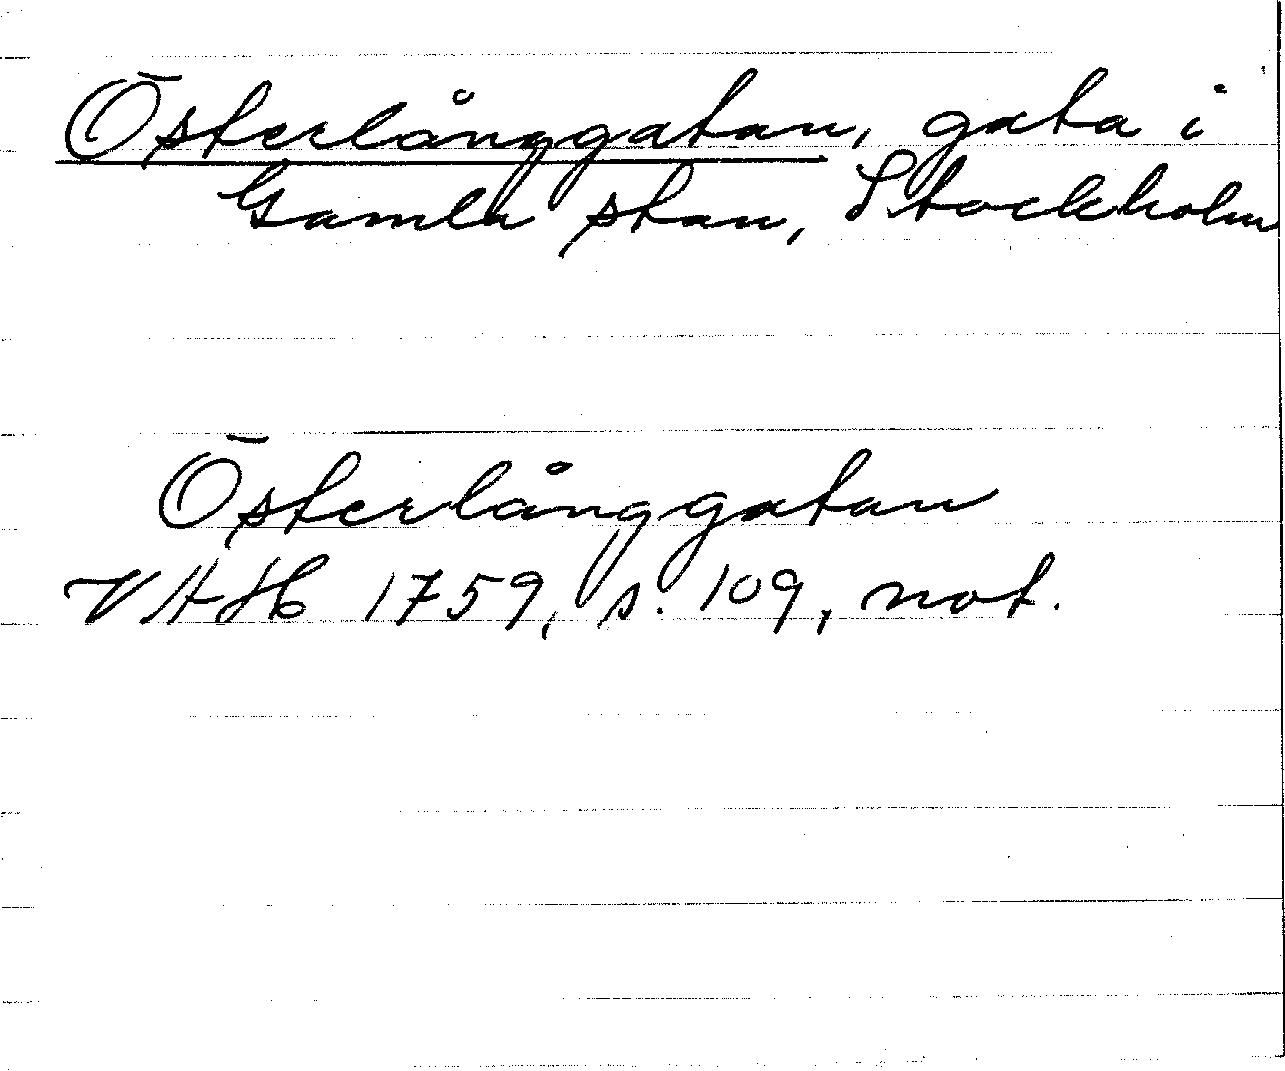 Österlånggatan, gata i
Gamla stan, Stockholm
Österlånggatan
VAH 1759, s. 109, not.